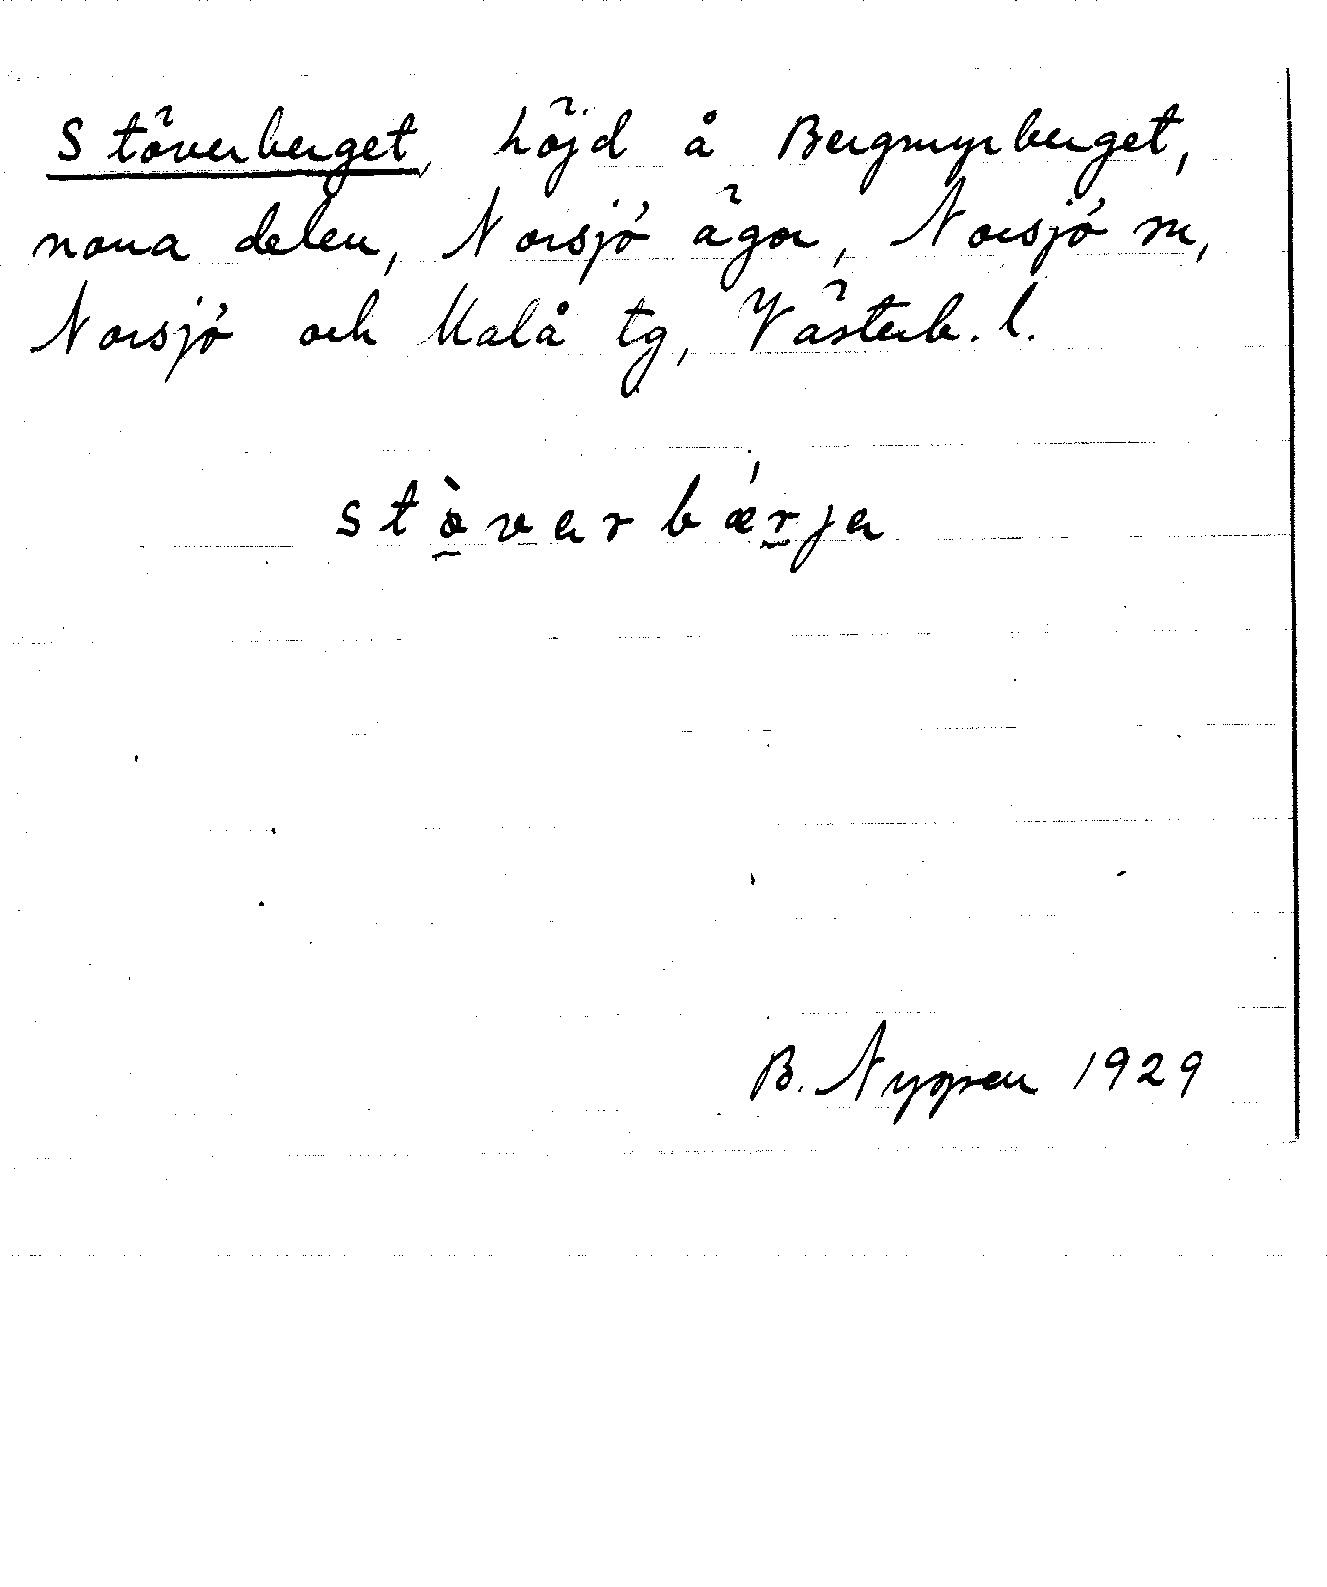 Stöverberget, höjd å Bergmyrberget,
norra delen, Norsjö ägor, Norsjö sn,
Norsjö och Malå tg, Västerb. l.
stò̱verbǽṟja
B. Nygren 1929